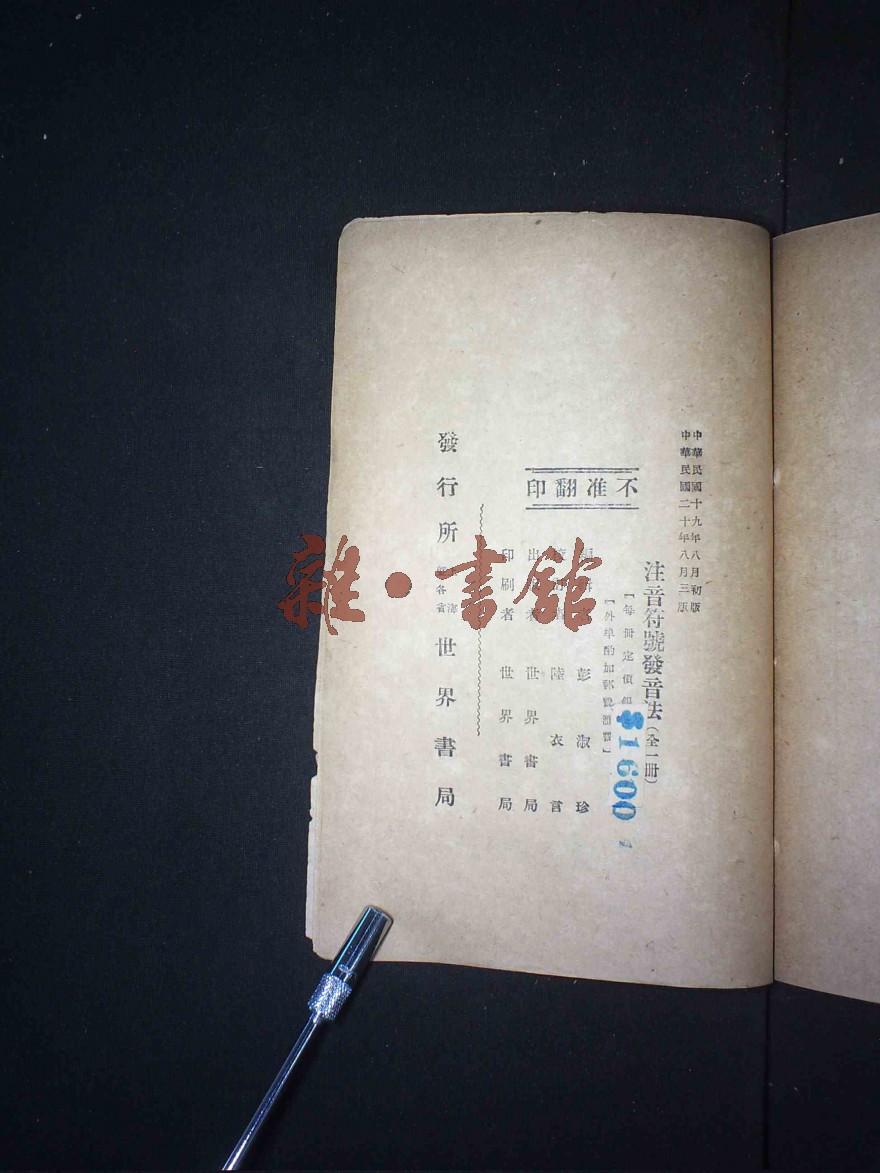 中華民國十九年八月初版
中華民國二十年八月三版
注音符號發音法(全一冊)
[每冊定價銀
[外埠酌加郵費滙費]
$1600
不准翻印
彭淑珍
陸衣言
出 者 世界書局
印刷者 世界書局
發行所 各省 世界書局
雜·書館